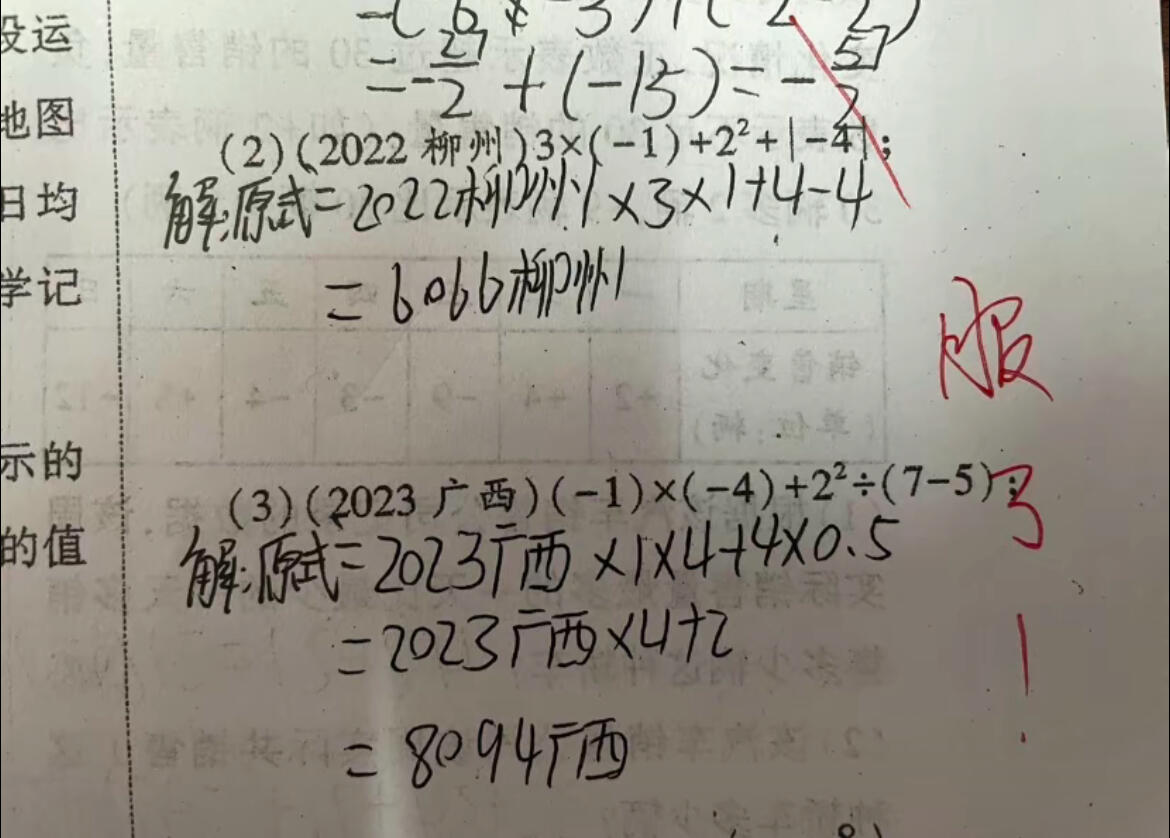 没运
地图
日均
学记
示的
的值
=-27/2+(-15)=-57/2
(2)(2022 柳州)3×(-1)+2²+|-4|;
解:原式=2022柳州×3×1+4-4
=6066柳州
(3)(2023 广西)(-1)×(-4)+2²÷(7-5);
解:原式=2023广西×1×4+4×0.5
=2023广西×4+2
=8094广西
服
了
!